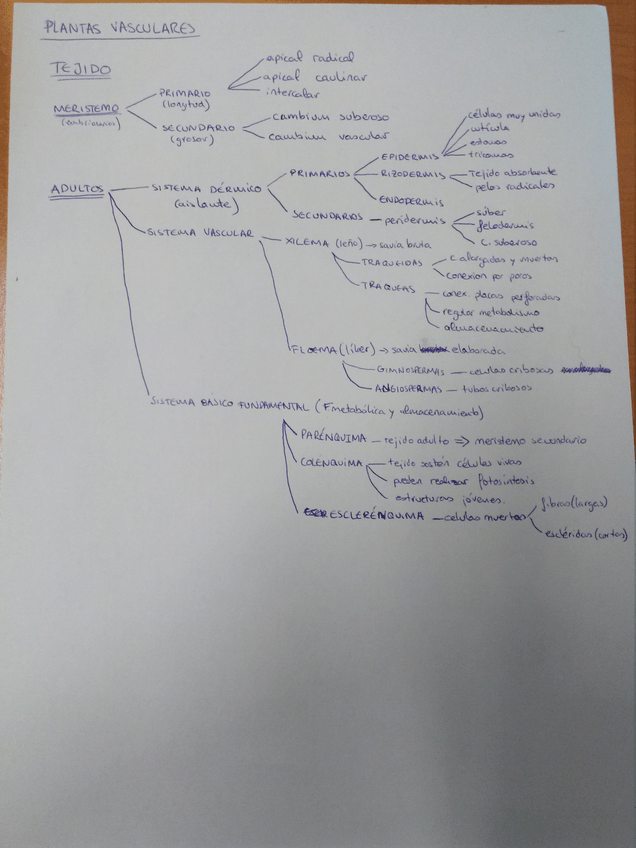 PLANTAS VASCULARES
TEJIDO
apical radical
apical caulinar
intercalar
PRIMARIO
(longitud)
MERISTEMO
(embrionario)
SECUNDARIO
(grosor)
cambium suberoso
cambium vascular
células muy unidas
cutícula
estomas
tricomas
EPIDERMIS
PRIMARIOS
RIZODERMIS
Tejido absorbente
pelos radicales
ENDODERMIS
ADULTOS
SISTEMA DÉRMICO
(aislante)
SECUNDARIOS - peridermis
súber
felodermis
C. suberoso
SISTEMA VASCULAR
XILEMA (leño) → savia bruta
TRAQUEIDAS
C. alargadas y muertas
conexion por poros
TRAQUEAS
conex. placas perforadas
regular metabolismo
almacenamiento
FLOEMA (líber) → savia elaborada
GIMNOSPERMAS - celulas cribosas
ANGIOSPERMAS - tubos cribosos
SISTEMA BÁSICO FUNDAMENTAL (F metabólica y almacenamiento)
PARÉNQUIMA - tejido adulto ⇒ meristemo secundario
COLÉNQUIMA
tejido sostén células vivas
pueden realizar fotosíntesis
estructuras jóvenes.
ESCLERÉNQUIMA - celulas muertas
fibras (largas)
escléridas (cortas)